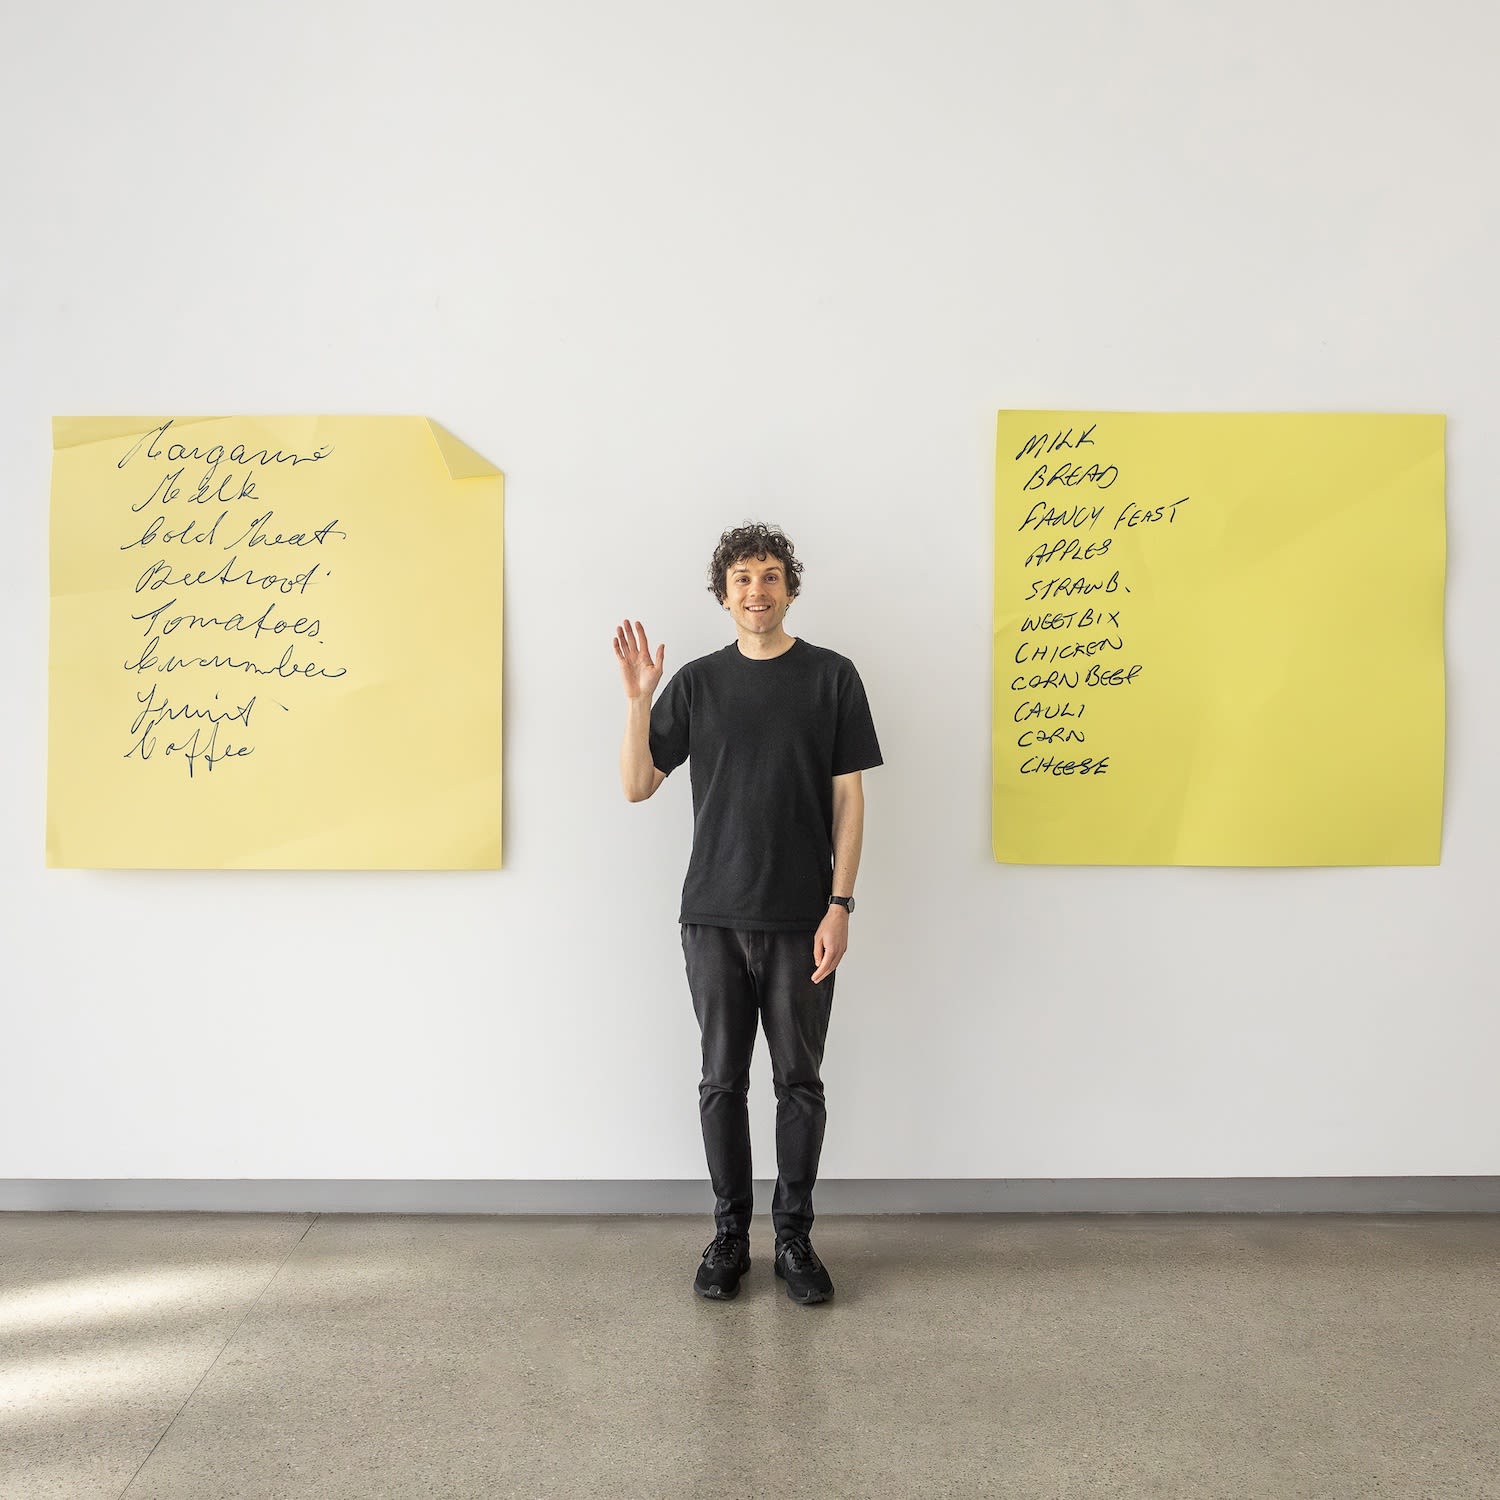 Margarine
Milk
Cold Meat
Beetroot.
Tomatoes
Cucumber
Fruit
Coffee
MILK
BREAD
FANCY FEAST
APPLES
STRAWB.
WEETBIX
CHICKEN
CORN BEEF
CAULI
CORN
CHEESE